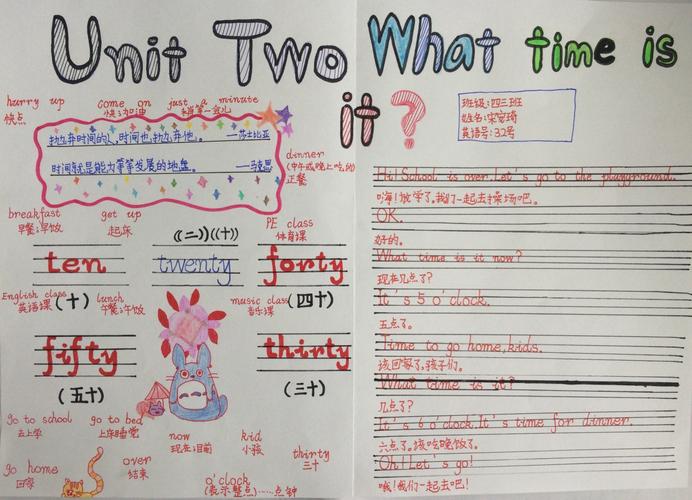 Unit Two What time is
it?
hurry up
快点
come on
快;加油
just a minute
稍等一会儿
抛弃时间的人,时间也抛弃他。 —莎士比亚
时间就是能力等等发展的地盘。 —马克思
班级:四三班
姓名:宋宛琦
英语号:32号
dinner
(中午或晚上吃的)
正餐
breakfast
早餐;早饭
get up
起床
PE class
体育课
((二))((十))
ten
twenty
forty
English class
英语课
(十)
lunch
午餐;午饭
music class
音乐课
(四十)
fifty
thirty
(五十)
(三十)
go to school
去上学
go to bed
上床睡觉
now
现在;目前
kid
小孩
thirty
三十
go home
回家
over
结束
o'clock
(表示整点)……点钟
Hi! School is over. Let's go to the playground.
嗨!放学了。我们一起去操场吧。
OK.
好的。
What time is it now?
现在几点了?
It's 5 o'clock.
五点了。
Time to go home, kids.
该回家了,孩子们。
What time is it?
几点了?
It's 6 o'clock. It's time for dinner.
六点了。该吃晚饭了。
Oh! Let's go!
哦!我们一起去吧!